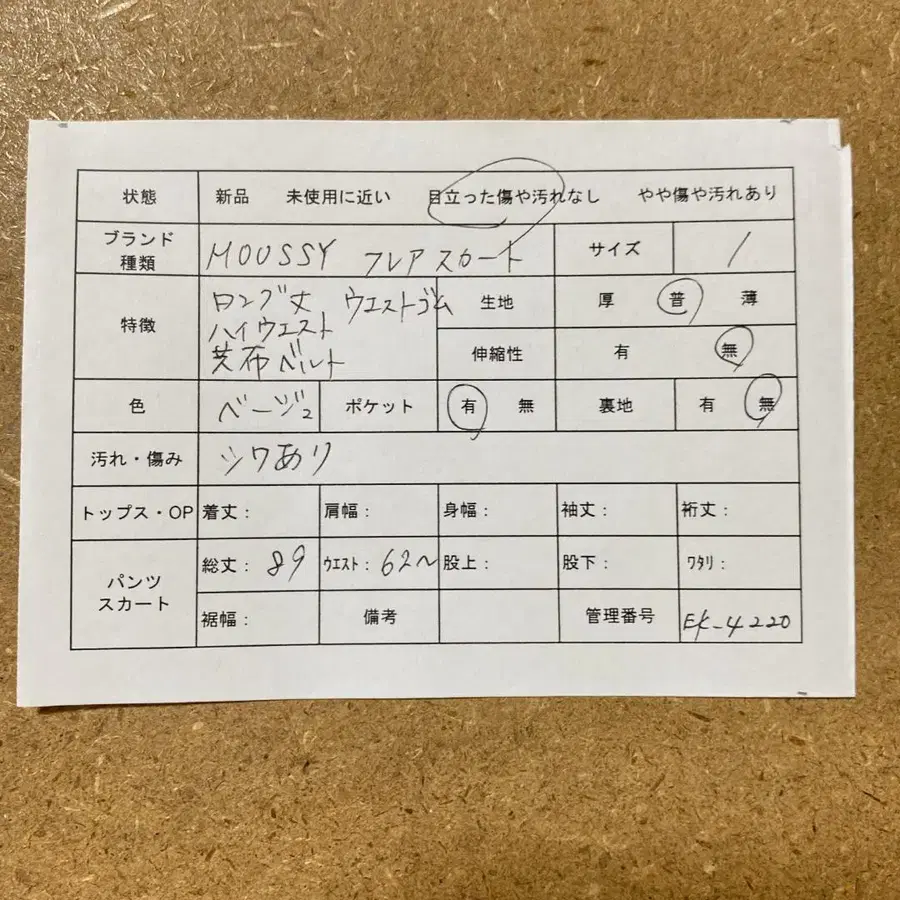 状態 新品 未使用に近い 目立った傷や汚れなし やや傷や汚れあり
ブランド 種類 MOUSSY フレアスカート サイズ 1
特徴 ロング丈 ウエストゴム
ハイウエスト
共布ベルト
生地 厚 普 薄
伸縮性 有 無
色 ベージュ ポケット 有 無 裏地 有 無
汚れ・傷み シワあり
トップス・OP 着丈: 肩幅: 身幅: 袖丈: 裄丈:
パンツ スカート 総丈: 89 ウエスト: 62〜 股上: 股下: ワタリ:
裾幅: 備考 管理番号 EK-4220